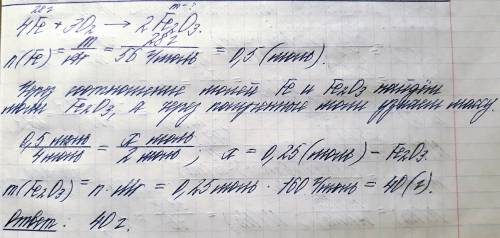 28г m-?
4Fe + 3O₂ → 2Fe₂O₃
n(Fe) = m/Mr = 28г/56 г/моль = 0,5 (моль).
Через соотношение молей Fe и Fe₂O₃ найдём
моли Fe₂O₃, а через полученные моли узнаем массу.
0,5 моль/4 моль = x моль/2 моль ; x = 0,25 (моль) – Fe₂O₃.
m(Fe₂O₃) = n · Mr = 0,25 моль · 160 г/моль = 40 (г).
Ответ: 40 г.